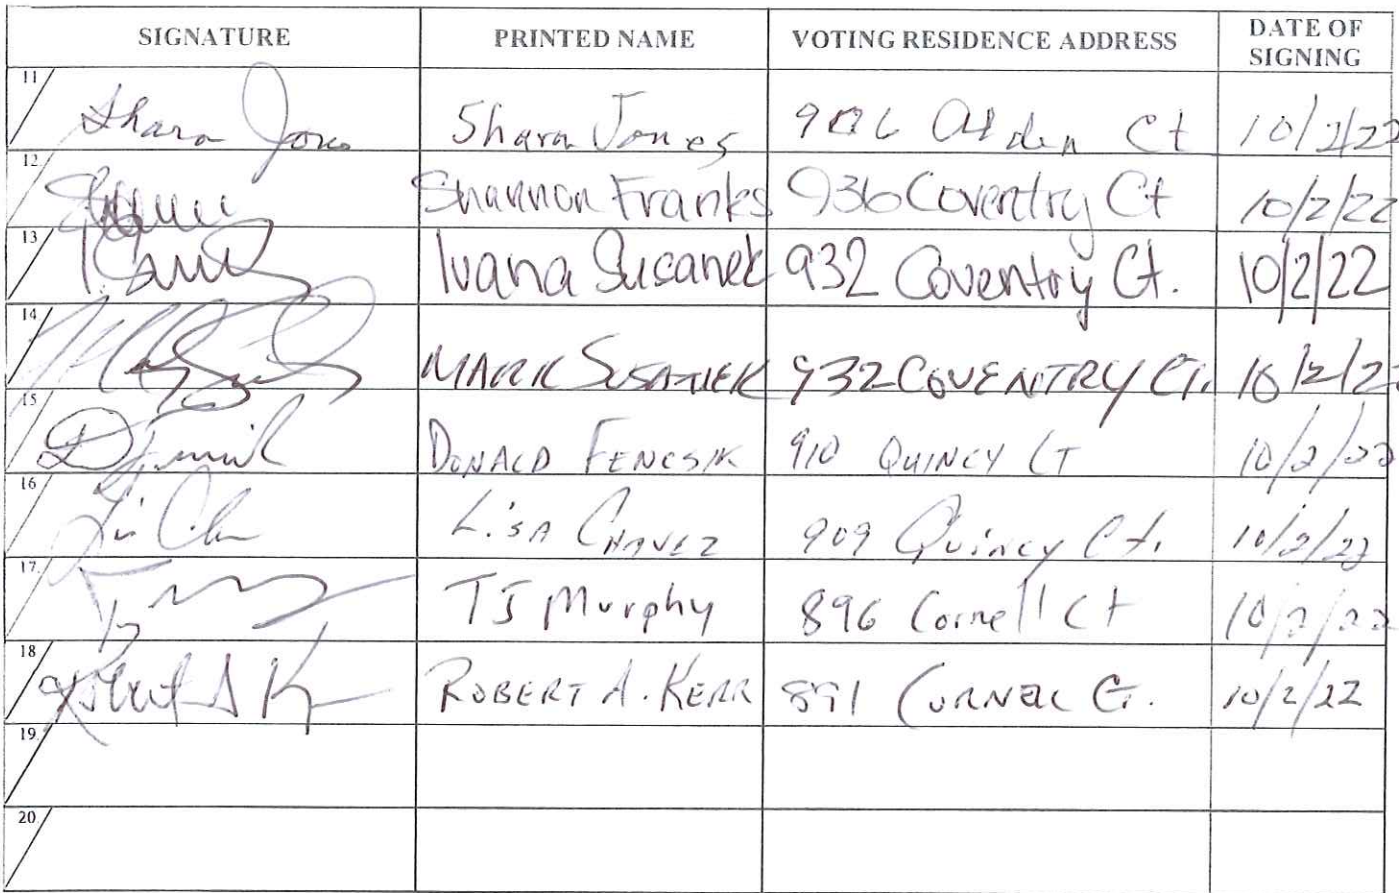 SIGNATURE PRINTED NAME VOTING RESIDENCE ADDRESS DATE OF SIGNING
11 Shara Jones Shara Jones Ct 10/2/22
12 Shannon Franks 936 Coventry Ct 10/2/22
13 Ivana Susanek 932 Coventry Ct. 10/2/22
14 MARK SUSANEK 932 COVENTRY CT. 10/2/22
15 DONALD FENCSIK 910 QUINCY CT 10/2/22
16 LiSA CHAVEZ 909 Quincy Ct. 10/2/22
17. TJ Murphy 896 Cornell Ct 10/2/22
18 ROBERT A. KERR 891 CORNELL CT. 10/2/22
19
20